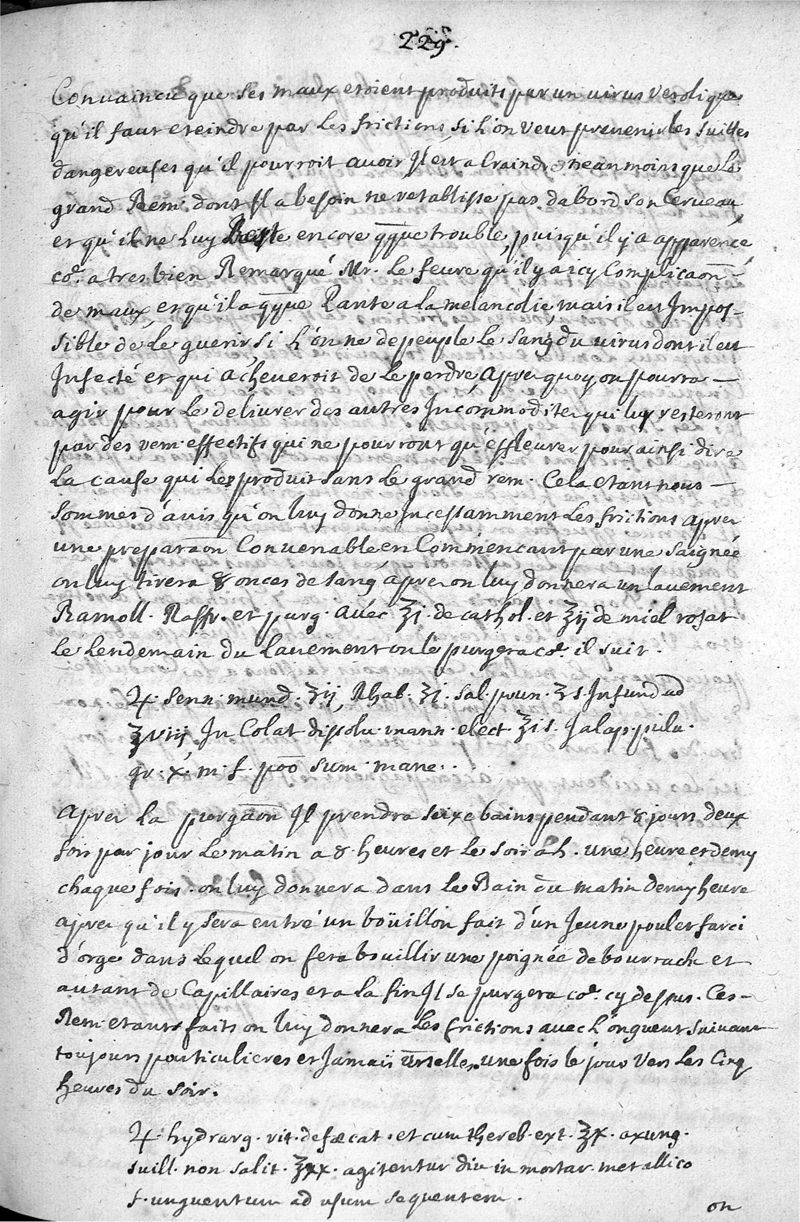 229.
Convaincu que ses maux etoient produits par un virus verolique
qu'il faut eteindre par les frictions si l'on veut prevenir les suittes
dangereuses qu'il pourroit avoir Il est a Craindre neanmoins que le
grand Rem. dont Il a besoin ne retablisse pas dabord son Cerveau
et qu'il ne luy Reste encore qque trouble, puisqu'il y a apparence
co. a tres bien Remarqué Mr. le feure qu'il y a icy Complicaon
de maux et qu'il a qque Pante a la melancolie, mais il est Impos-
sible de le guerir si l'on ne depeuple le sang du virus dont il est
Infecté et qui acheveroit de le perdre, apres quoy on pourra
agir pour le delivrer des autres Incommoditez qui luy resteront
par des rem. effectifs qui ne pourront qu'effleurer pour ainsi dire
la cause qui les produit sans le grand rem. Cela etant nous
sommes d'avis qu'on luy donne Incessamment les frictions apres
une preparaon Convenable en Commencant par une saignée
on luy tirera 8 onces de sang, apres on luy donnera un lavement
Ramoll. Rafr. et purg. avec ℥j. de cathol. et ℥ij de miel rosat
le lendemain du lavement on le purgera co. il suit.
♃. Senn. mund. ʒij, Rhab. ʒj. sal. poun. ʒs. Infund ad
℥viij In Colat dissolu. mann. elect. ℥is. Jalap. pulu.
gr. x. m. f. poo sum. mane.
apres la purgaon Il prendra seize bains pendant 8 jours deux
fois par jour le matin a 8 heures et le soir a h. une heure et demy
chaque fois. on luy donnera dans le Bain du matin demy heure
apres qu'il y sera entré un boüillon fait d'un Jeune poulet farci
d'orge dans lequel on fera bouillir une poignée de bourrache et
autant de Capillaires et a la fin Il se purgera co. cy dessus. Ces
Rem. etants faits on luy donnera les frictions avec l'onguent suivant
toujours particulieres et Jamais une fois le jour vers les Cinq
heures du soir.
♃. hydrarg. vit. defæcat. et cum thereb. ext. ℥x. axung.
suill. non salit. ℥xx. agitentur diu in mortar. metallico
f. unguentum ad usum sequentem.
on